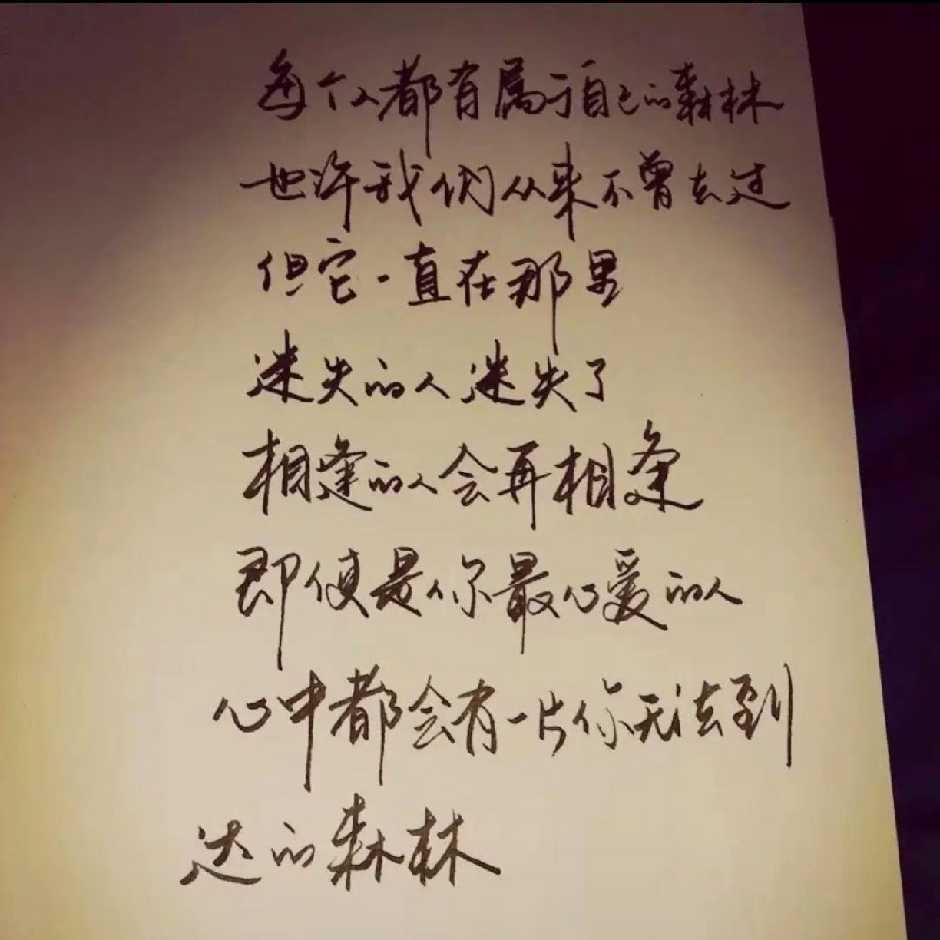 每个人都有属于自己的森林
也许我们从来不曾去过
但它一直在那里
迷失的人迷失了
相逢的人会再相逢
即使是你最心爱的人
心中都会有一片你无法到
达的森林